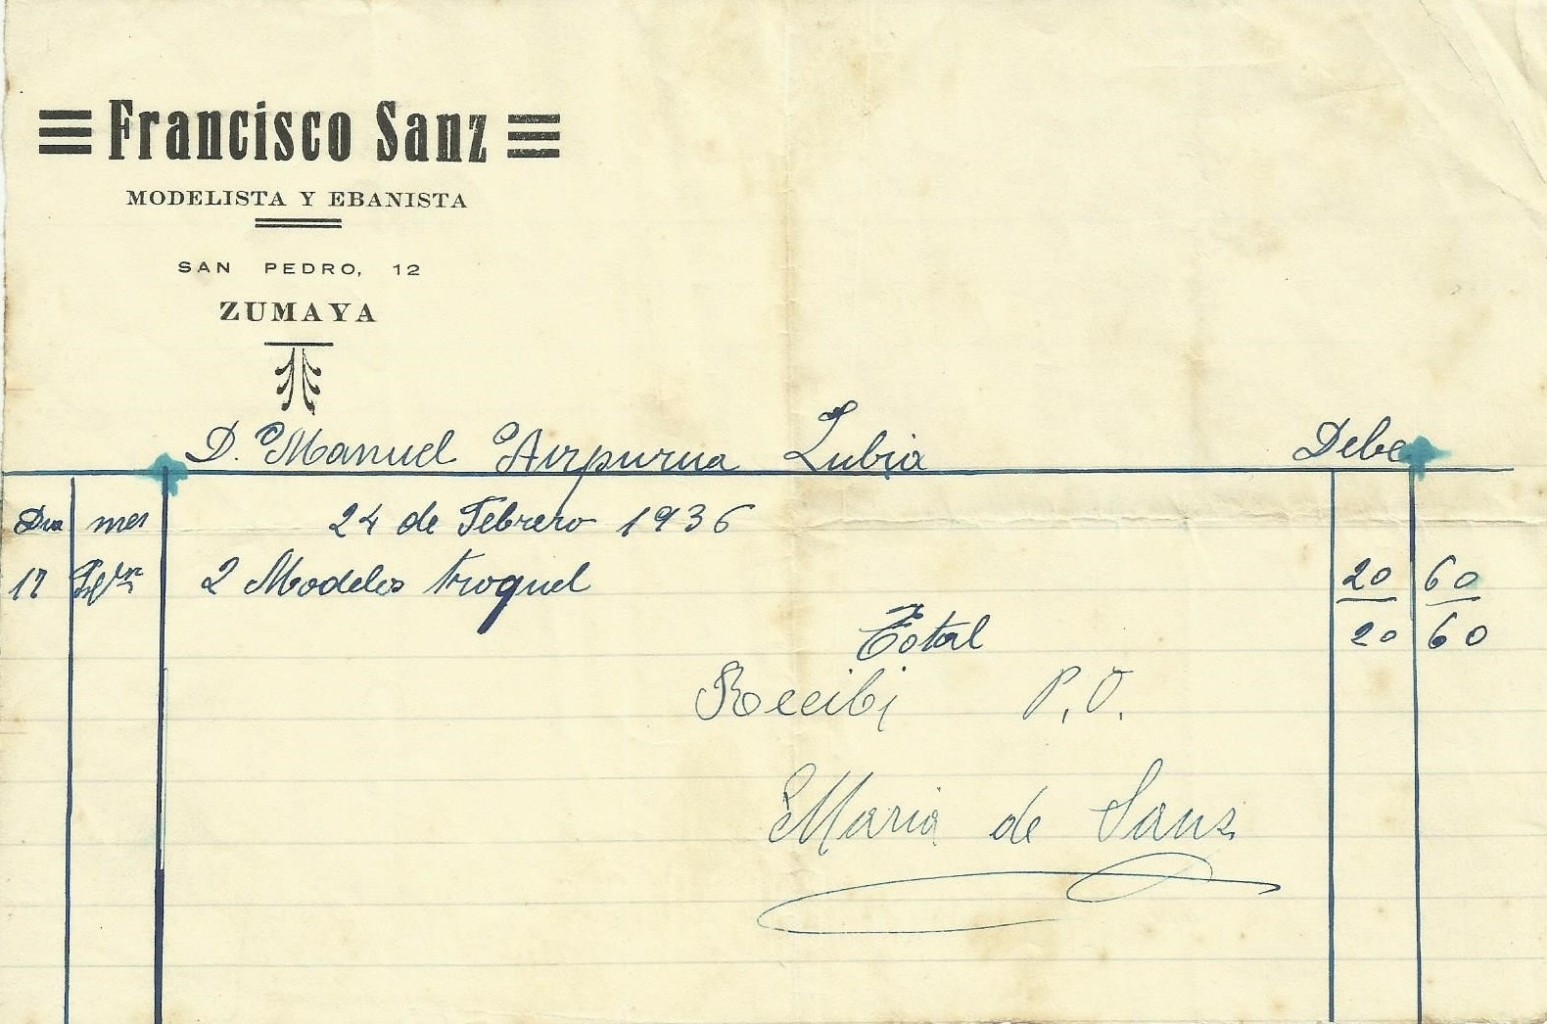 Francisco Sanz
MODELISTA Y EBANISTA
SAN PEDRO, 12
ZUMAYA
D. Manuel Aizpurua Zubia Debe
Dia mes 24 de Febrero 1936
17 2 Modelos troquel 20 60
Total 20 60
Recibi P.O.
Maria de Sanz